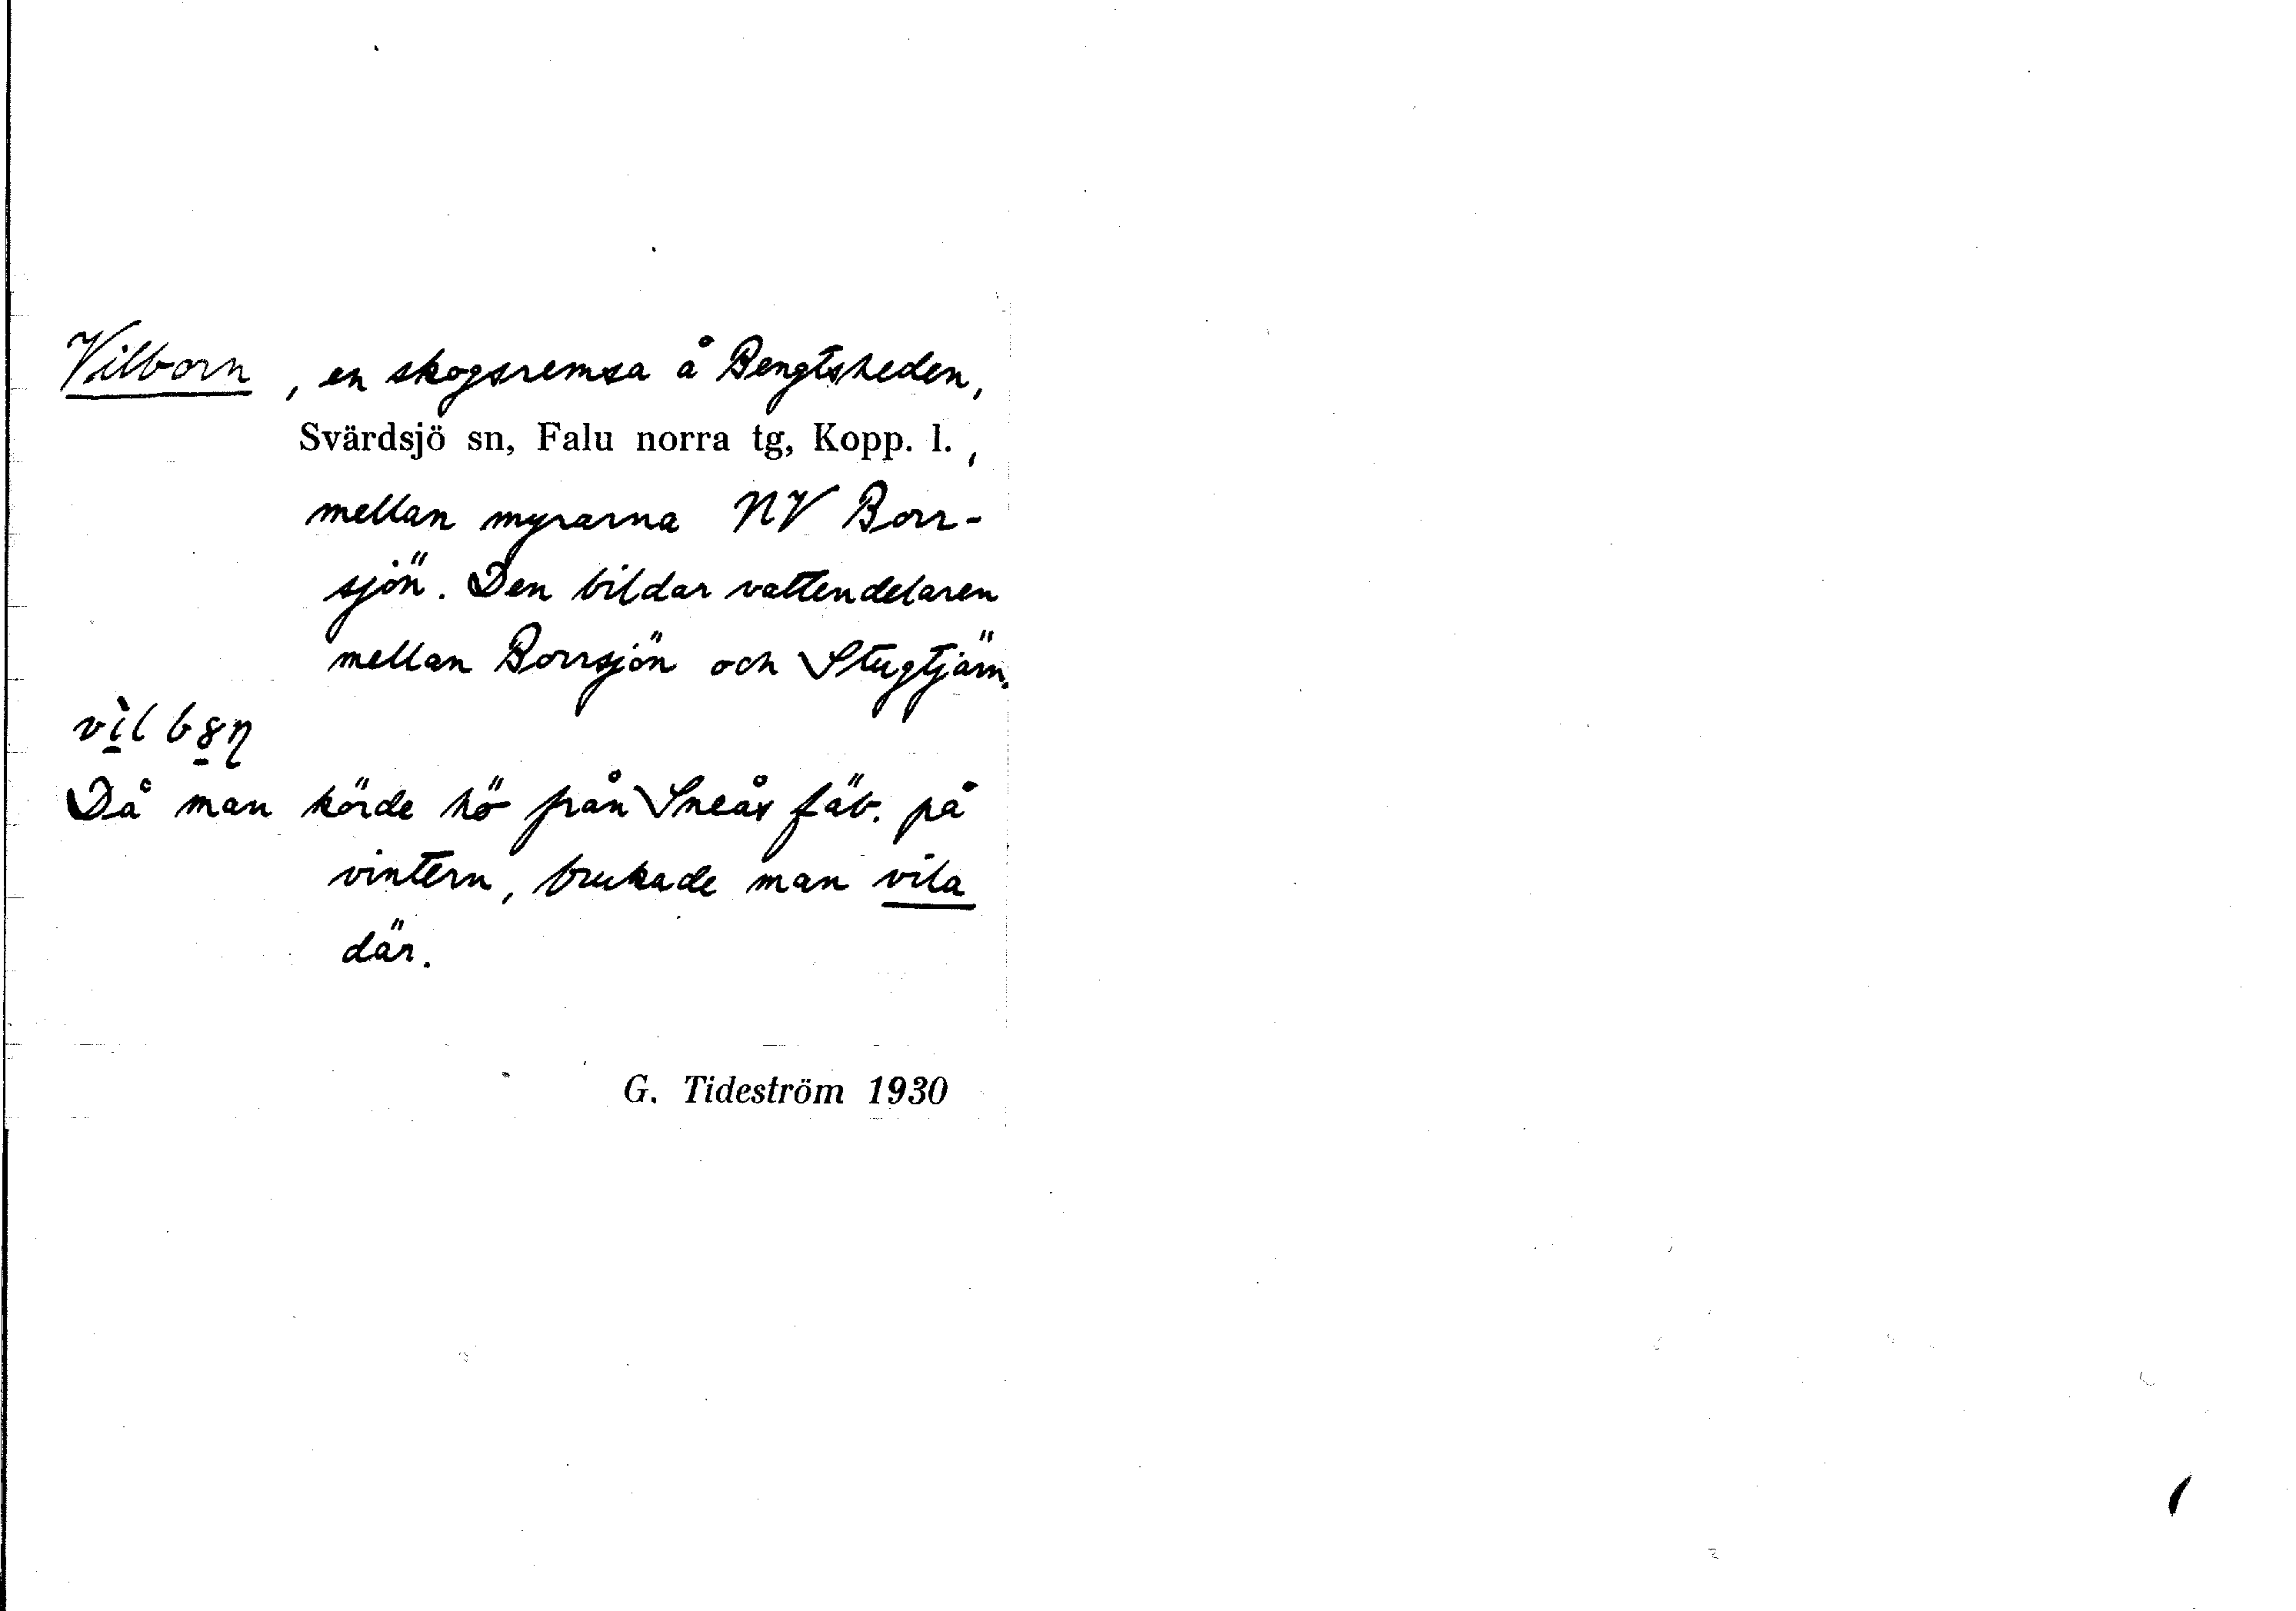 Vilborn, en skogsremsa å Bengtsheden,
Svärdsjö sn, Falu norra tg, Kopp. l.,
mellan myrarna NV Borr-
sjön. Den bildar vattendelaren
mellan Borrsjön och Stugtjärn.
Då man körde hö från Sneås fäb. på
vintern, brukade man vila
där.
G. Tideström 1930